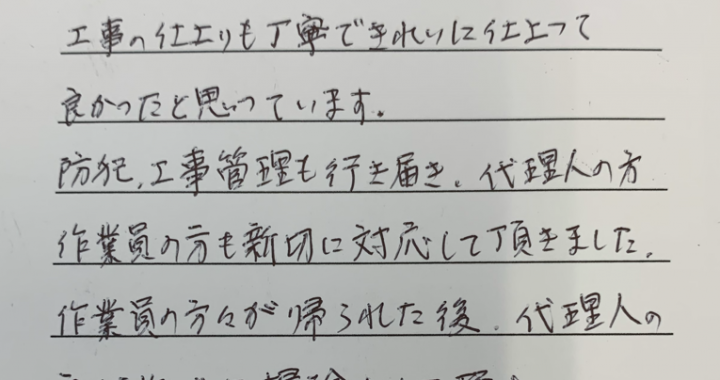 工事の仕上りも丁寧できれいに仕上って
良かったと思っています。
防犯、工事管理も行き届き、代理人の方
作業員の方も新切に対応して頂きました。
作業員の方々が帰られた後、代理人の